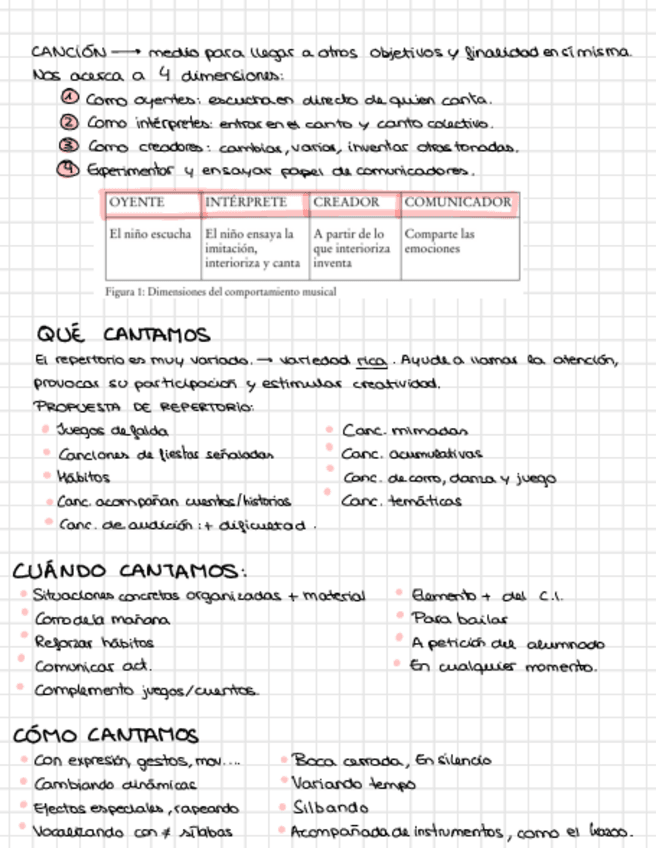 CANCIÓN → medio para llegar a otros objetivos y finalidad en sí misma.
Nos acerca a 4 dimensiones:
1 Como oyentes: escucha en directo de quien canta.
2 Como intérpretes: entrar en el canto y canto colectivo.
3 Como creadores: cambiar, variar, inventar otras tonadas.
4 Experimentar y ensayar papel de comunicadores.
OYENTE INTÉRPRETE CREADOR COMUNICADOR
El niño escucha El niño ensaya la A partir de lo Comparte las
imitación, que interioriza emociones
interioriza y canta inventa
Figura 1: Dimensiones del comportamiento musical
QUÉ CANTAMOS
El repertorio es muy variado. → variedad rica. Ayuda a llamar la atención,
provocar su participación y estimular creatividad.
PROPUESTA DE REPERTORIO:
Juegos de falda
Canciones de fiestas señaladas
Hábitos
Canc. acompañan cuentos/historias
Canc. de audición: + dificultad.
Canc. mimadas
Canc. acumulativas
Canc. de corro, danza y juego
Canc. temáticas
CUÁNDO CANTAMOS:
Situaciones concretas organizadas + material
Corro de la mañana
Reforzar hábitos
Comunicar act.
Complemento juegos/cuentos.
Elemento + del C.I.
Para bailar
A petición del alumnado
En cualquier momento.
CÓMO CANTAMOS
Con expresión, gestos, mov....
Cambiando dinámicas
Efectos especiales, rapeando
Vocalizando con ≠ sílabas
Boca cerrada, En silencio
Variando tempo
Silbando
Acompañada de instrumentos, como el